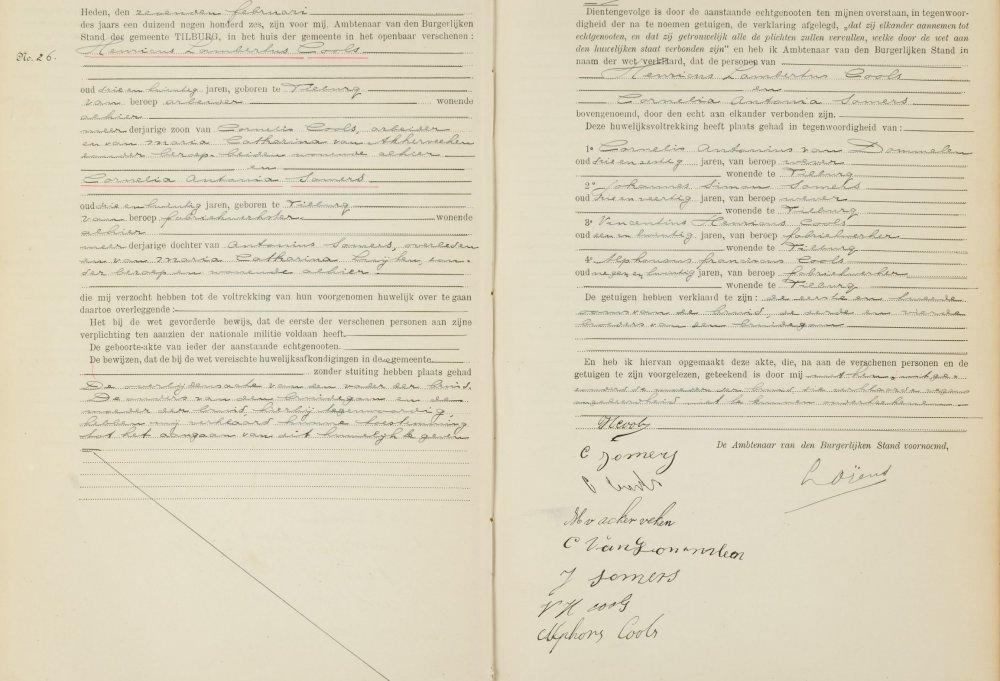 Heden, den zevenden februari
des jaars een duizend negen honderd zes, zijn voor mij, Ambtenaar van den Burgerlijken
Stand der gemeente TILBURG, in het huis der gemeente in het openbaar verschenen:
No. 26.
Henricus Lambertus Cools
oud drie en twintig jaren, geboren te Tilburg
van beroep arbeider wonende
alhier
meerderjarige zoon van Cornelis Cools, arbeider
en van Maria Catharina van Akkerveeken
zonder beroep beiden wonende alhier
en
Cornelia Antonia Somers
oud drie en twintig jaren, geboren te Tilburg
van beroep fabriekwerkster wonende
alhier
meerderjarige dochter van Antonius Somers, overleden
en van Maria Catharina Huijben, zon-
der beroep en wonende alhier
die mij verzocht hebben tot de voltrekking van hun voorgenomen huwelijk over te gaan
daartoe overleggende:
Het bij de wet gevorderde bewijs, dat de eerste der verschenen personen aan zijne
verplichting ten aanzien der nationale militie voldaan heeft.
De geboorte-akte van ieder der aanstaande echtgenooten.
De bewijzen, dat de bij de wet vereischte huwelijksafkondigingen in deze gemeente
zonder stuiting hebben plaats gehad
De overlijdensacte van den vader der bruid.
De ouders van den bruidegom en de
moeder der bruid, hierbij tegenwoordig,
hebben mij verklaard hunne toestemming
tot het aangaan van dit huwelijk te geven
Dientengevolge is door de aanstaande echtgenooten ten mijnen overstaan, in tegenwoor-
digheid der na te noemen getuigen, de verklaring afgelegd, „dat zij elkander aannemen tot
echtgenooten, en dat zij getrouwelijk alle de plichten zullen vervullen, welke door de wet aan
den huwelijken staat verbonden zijn” en heb ik Ambtenaar van den Burgerlijken Stand in
naam der wet verklaard, dat de personen van
Henricus Lambertus Cools
en
Cornelia Antonia Somers
bovengenoemd, door den echt aan elkander verbonden zijn.
Deze huwelijksvoltrekking heeft plaats gehad in tegenwoordigheid van:
1° Cornelis Antonius van Dommelen
oud drie en zestig jaren, van beroep wever
wonende te Tilburg
2° Johannes Simon Somers
oud drie en veertig jaren, van beroep wever
wonende te Tilburg
3° Vincentius Henricus Cools
oud een en twintig jaren, van beroep fabriekwerker
wonende te Tilburg
4° Alphonsus franciscus Cools
oud negen en twintig jaren, van beroep fabriekwerker
wonende te Tilburg
De getuigen hebben verklaard te zijn: de eerste en tweede
ooms van de bruid, de derde en vierde
broeders van den bruidegom
En heb ik hiervan opgemaakt deze akte, die, na aan de verschenen personen en de
getuigen te zijn voorgelezen, geteekend is door mij met hen, uitge-
zonderd de moeder der bruid die verklaarde wegens
ongeleerdheid niet te kunnen onderteekenen
H Cools
De Ambtenaar van den Burgerlijken Stand voornoemd,
C Somers
C Cools
M v ackerveken
C Van Dommelen
J Somers
V H cools
Alphons Cools